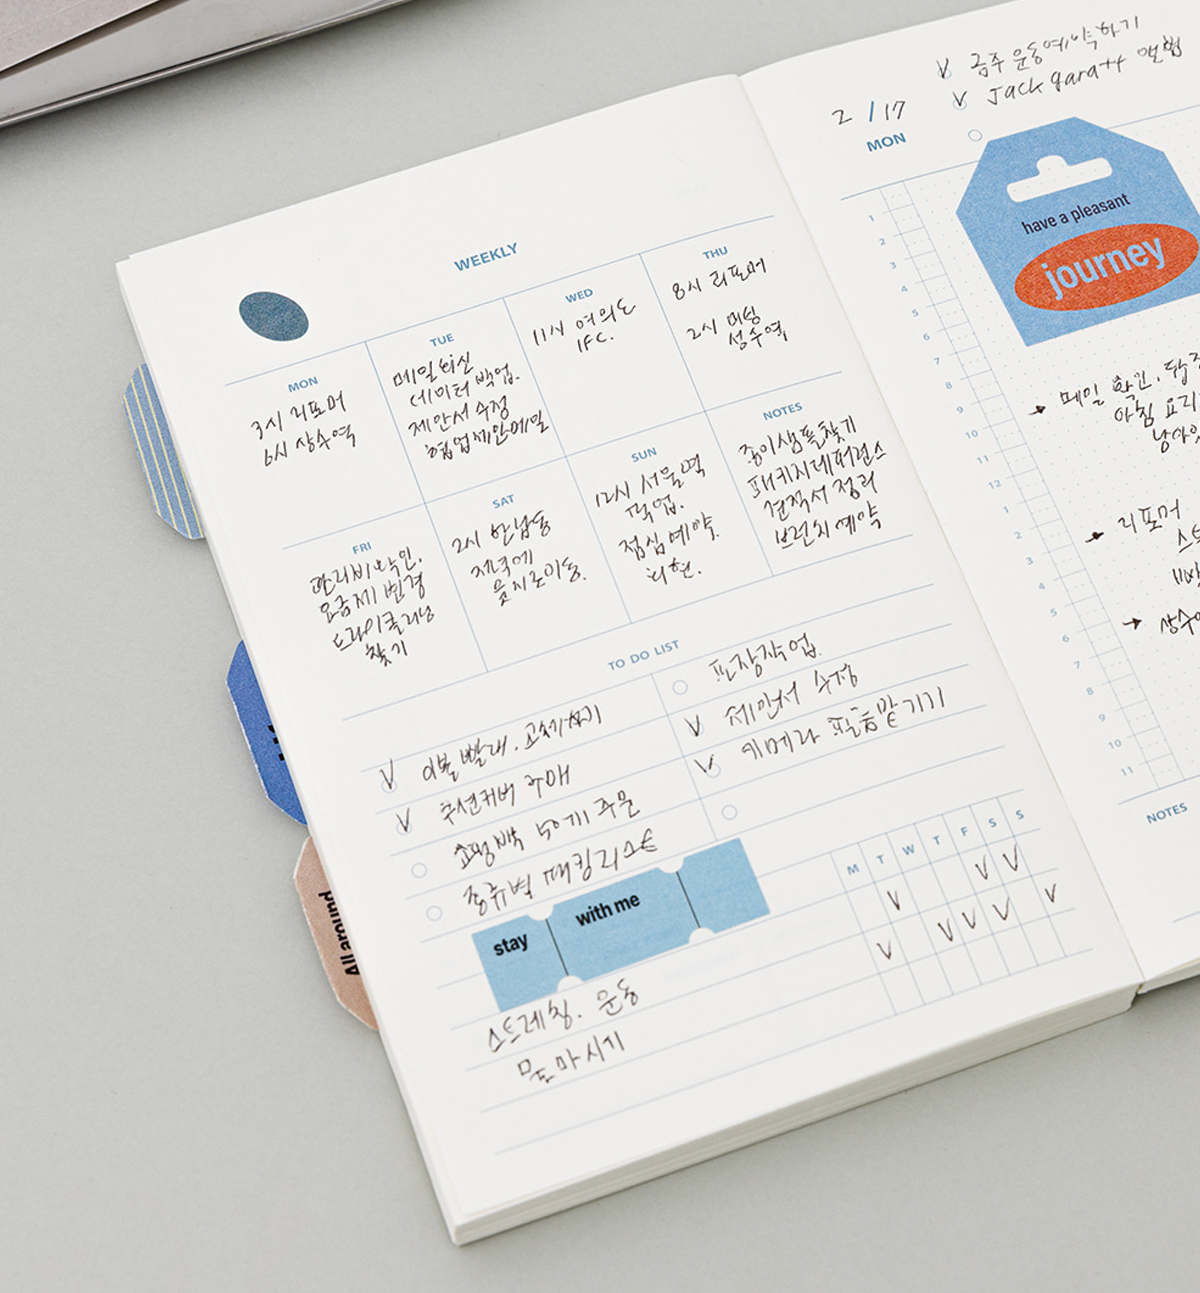 WEEKLY
MON
3시 리포머
6시 상수역
TUE
메일회신
데이터 백업.
제안서 수정
협업제안메일
WED
11시 여의도
IFC.
THU
8시 리포머
2시 미팅
성수역
FRI
관리비 확인.
요금제 변경
드라이클리닝
찾기
SAT
2시 한남동
저녁에
을지로이동.
SUN
12시 서울역
픽업.
점심예약.
NOTES
종이샘플찾기
패키지레퍼런스
견적서 정리
브런치 예약
TO DO LIST
이불빨래.
쿠션커버 구매
주문
종류별
포장작업.
제안서 수정
카메라 필름맡기기
stay
with me
스트레칭. 운동
물마시기
M T W T F S S
All around
금주 운동예약하기
Jack garatt 앨범
2 / 17
MON
have a pleasant
journey
1
2
3
4
5
6
7
8
9
10
11
12
1
2
3
4
5
6
7
8
9
10
11
메일 확인.
아침 요리
리포머
NOTES